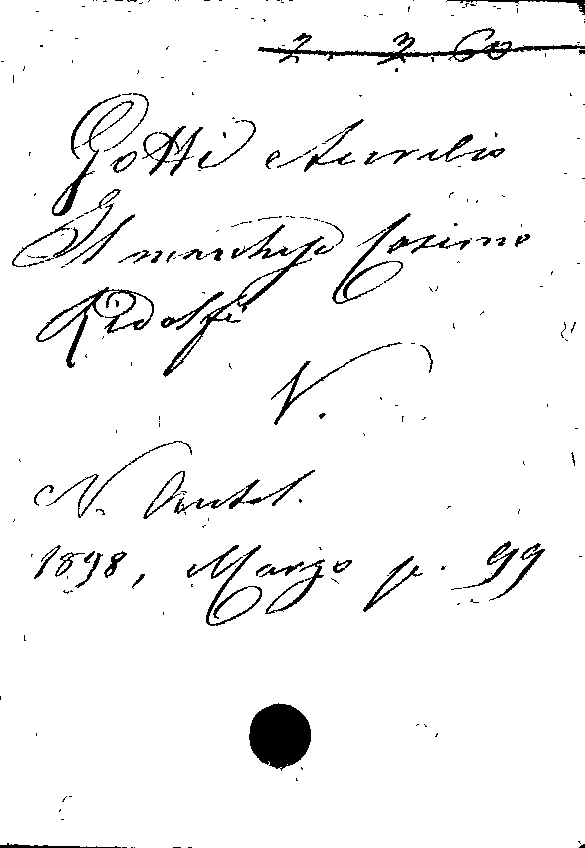 2. 3. 60
Gotti Aurelio
Il marchese Cosimo
Ridolfi
V.
N. Antol.
1898, Marzo p. 99